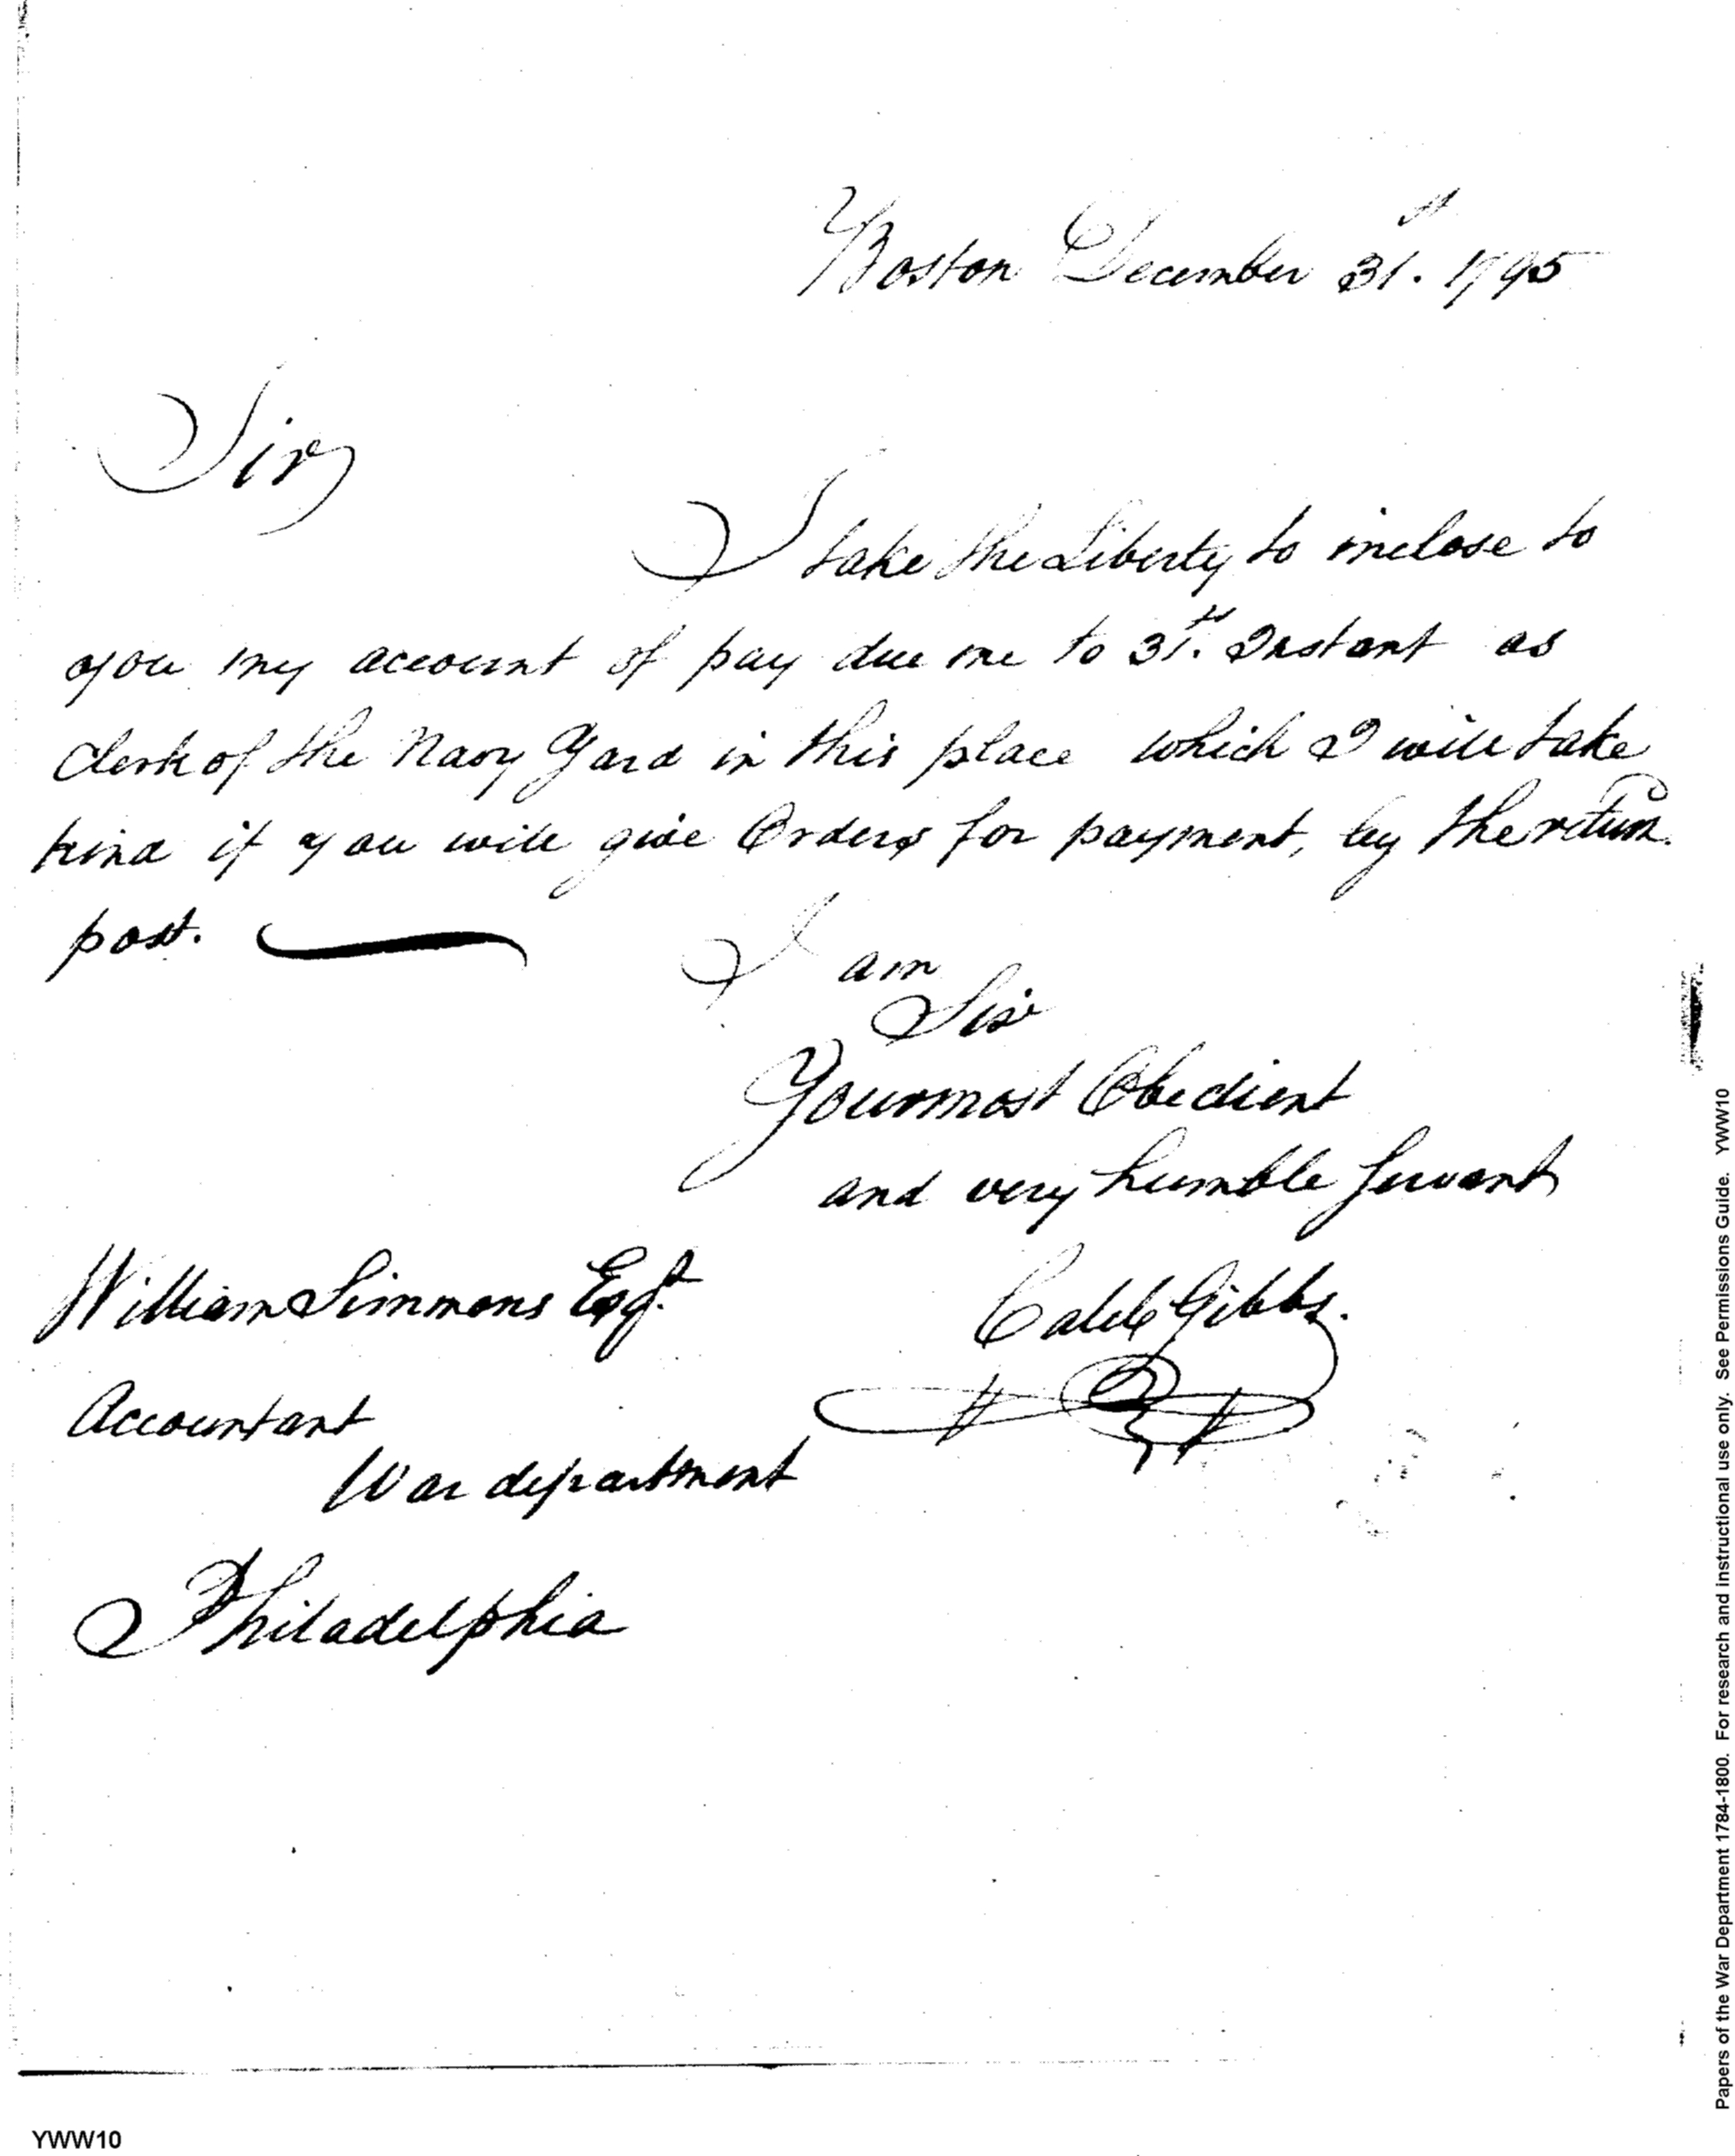 Boston December 31st. 1795
Sir
I take the Liberty to inclose to
you my account of pay due me to 31st. Instant as
Clerk of the Navy Yard in this place which I will take
kind if you will give Orders for payment, by the return
post.
I am
Sir
Your most Obedient
and very humble Servant
Caleb Gibbs.
William Simmons Esqr.
Accountant
War department
Philadelphia
YWW10
Papers of the War Department 1784-1800. For research and instructional use only. See Permissions Guide. YWW10